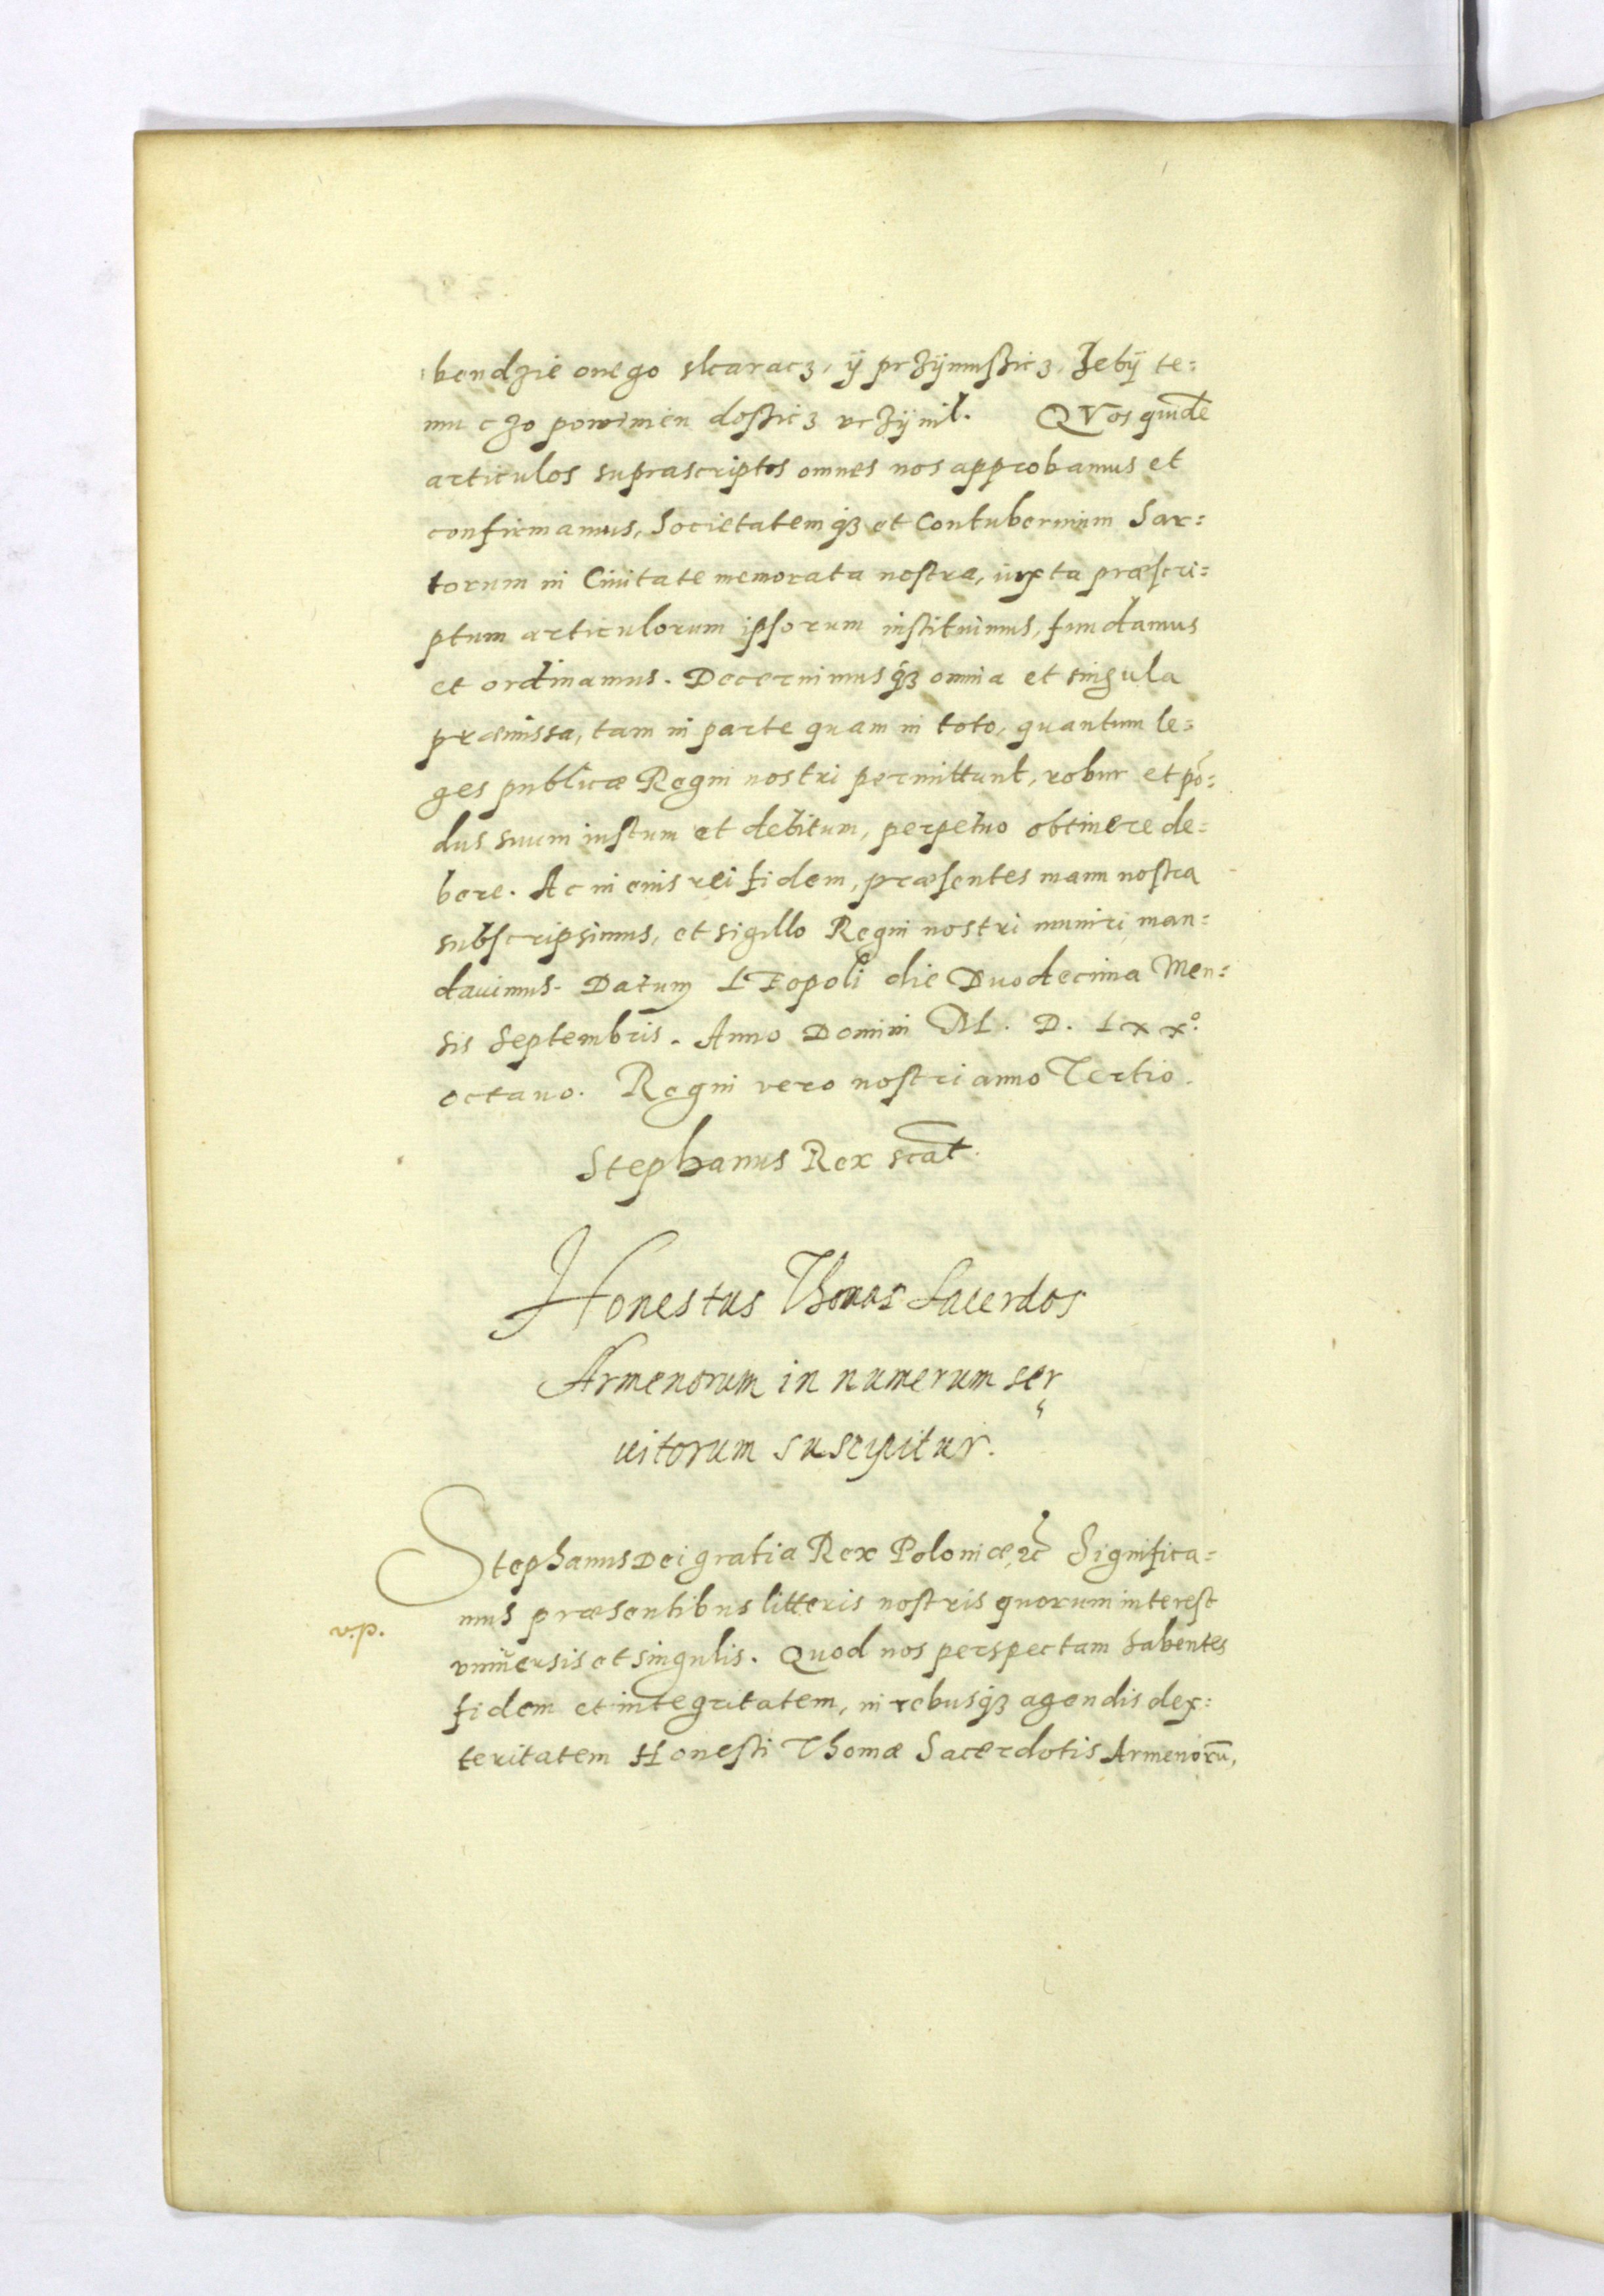 bendzie onego skaracz, ÿ przÿmusźicz, Zebÿ te=
mu czo powinien dosźicz vczÿnil. QVos quidē
articulos suprascriptos omnes nos approbamus et
confirmamus, Societatemq́ꝫ et Contubernium Sar=
torum in Ciuitate memorata nostra, iuxta præscri=
ptum articulorum ipsorum instituimus, fundamus
et ordinamus. Decernimusq́ꝫ omnia et singula
præmissa, tam in parte quam in toto, quantum le=
ges publicæ Regni nostri permittunt, robur et põ=
dus suum iustum et debitum, perpetuo obtinere de=
bere. Ac in eius rei fidem, præsentes manu nostra
subscripsimus, et sigillo Regni nostri muniri man=
dauimus. Datum LEopoli die Duodecima Men=
sis Septembris. Anno Domini M. D. Lxxº.
octauo. Regni vero nostri anno Tertio.
Stephanus Rex scāt.
Honestus Thomas Sacerdos
Armenorum in numerum ser
uitorum suscipitur.
Stephanus Dei gratia Rex Poloniæ, ꝛc̃ Significa=
mus præsentibus litteris nostris quorum interest
v.p.
vniũersis et singulis. Quod nos perspectam habentes
fidem et integritatem, in rebusq́ꝫ agendis dex=
teritatem Honesti Thomæ Sacerdotis Armenorū,